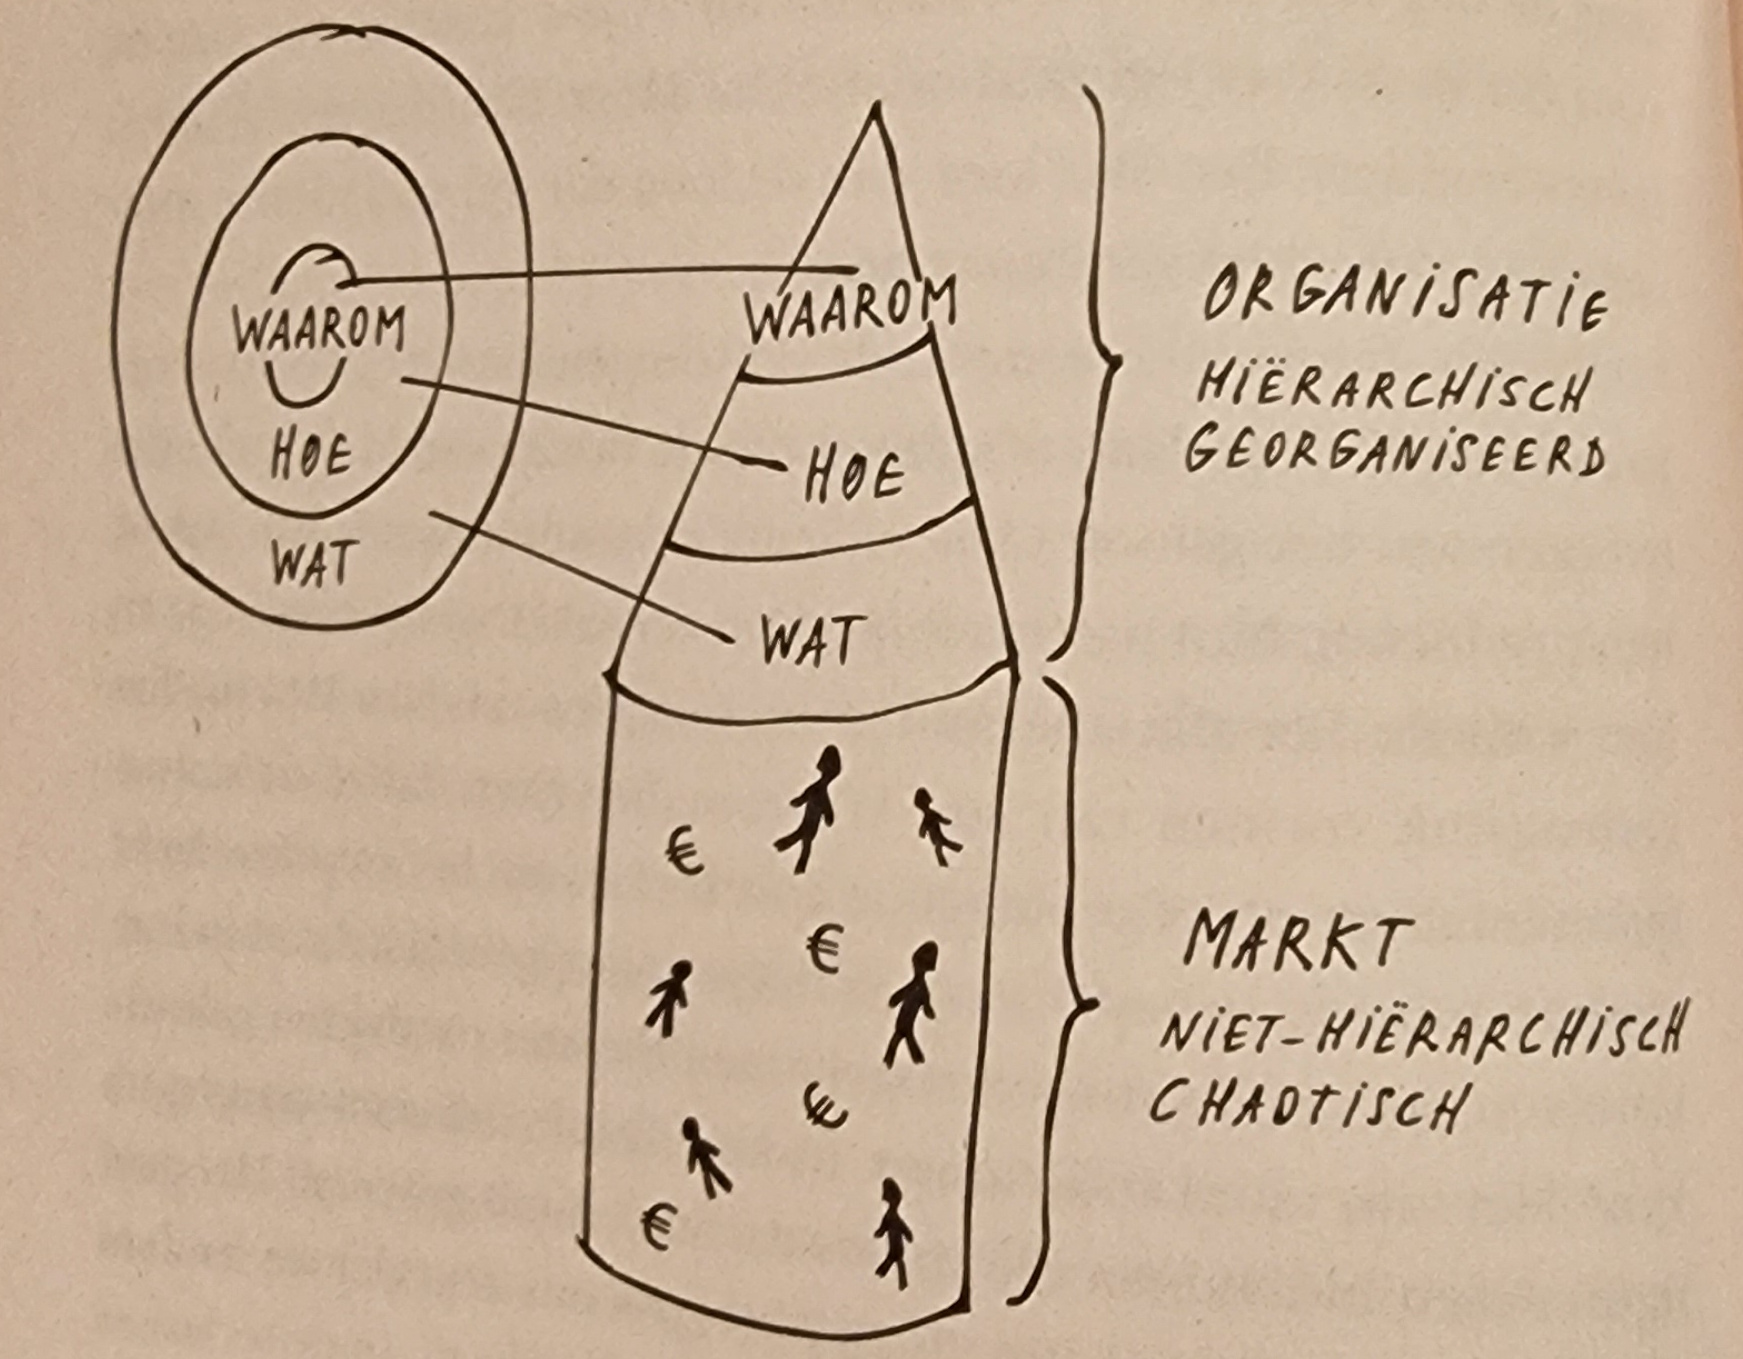 WAAROM
HOE
WAT
WAAROM
HOE
WAT
ORGANISATIE
HIËRARCHISCH
GEORGANISEERD
€
€
€
€
MARKT
NIET-HIËRARCHISCH
CHAOTISCH